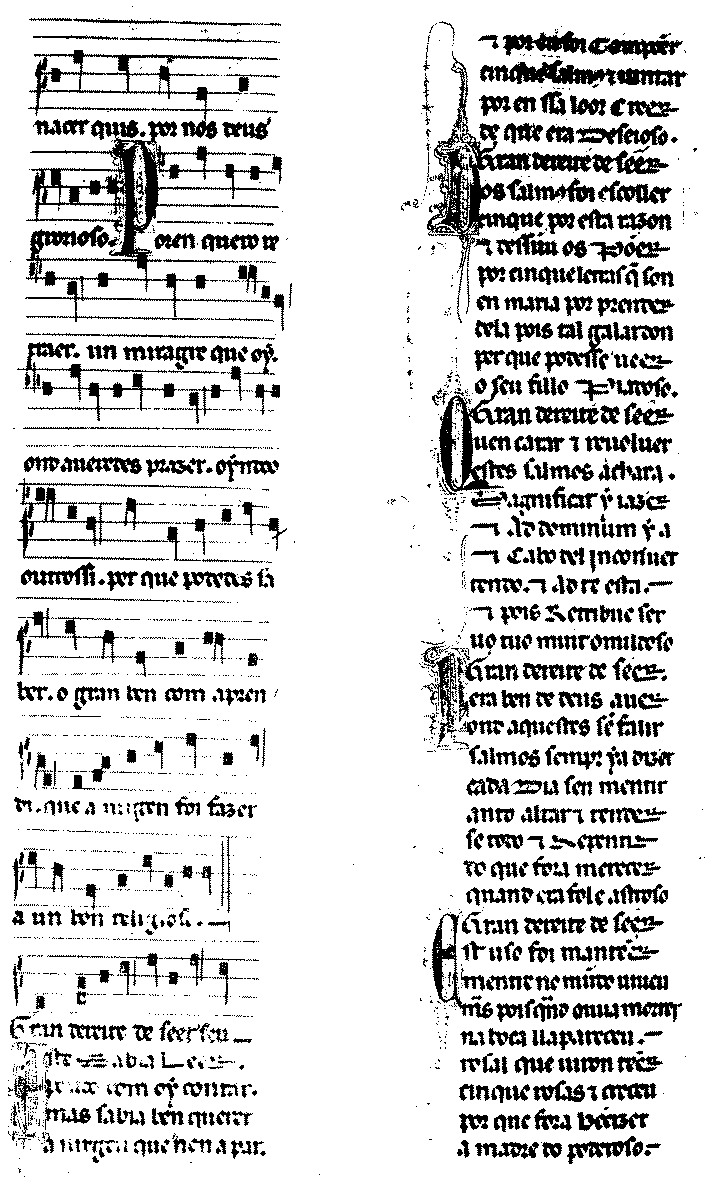 nacer quis. por nos deus
glorioso. Poren quero re
traer. un miragre que oý.
ond averedes prazer. oýndo
outrossi. per que podedes sa
ber. o gran ben com apren
di. que a uirgen foi fazer
a un bon religioso.
Gran dereite de seer seu
Este sabia leer
pouco com oý contar.
mas sabia ben querer
a uirgen que non a par.
⁊ poren foi compõer
cinque salmos ⁊ iuntar
por en ssa loor creer
de que era desejoso.
Gran dereite de seer
Dos salmos foi escoller
cinque por esta razon
⁊ dessũu os põer
por cinque letras q̃ son
en maria por prender
dela pois tal galardon
per que podesse veer
o seu fillo piadoso.
Gran dereite de seer
Quen catar ⁊ revoluer
estes salmos achará.
Magnificat ý iazer
⁊ Ad dominum ý a
⁊ Cabo del In conuer
tendo. ⁊ Ad te está.
⁊ pois Retribue ser
uo tuo muit omildoso
Gran dereite de seer.
Pera ben de deus auer
ond aquestes sẽ falir
salmos sempr ýa dizer
cada dia sen mentir
ant o altar ⁊ tender
se todo ⁊ repentir
do que fora merecer
quand era fol e astroso
Gran dereite de seer
Est uso foi manteer
mentre no mũdo uiueu
mas pois quando ouue a morrer
na boca ll apareceu
rosal que uiron teer
cinque rosas ⁊ creceu
por que fora beeizer
a madre do poderoso.